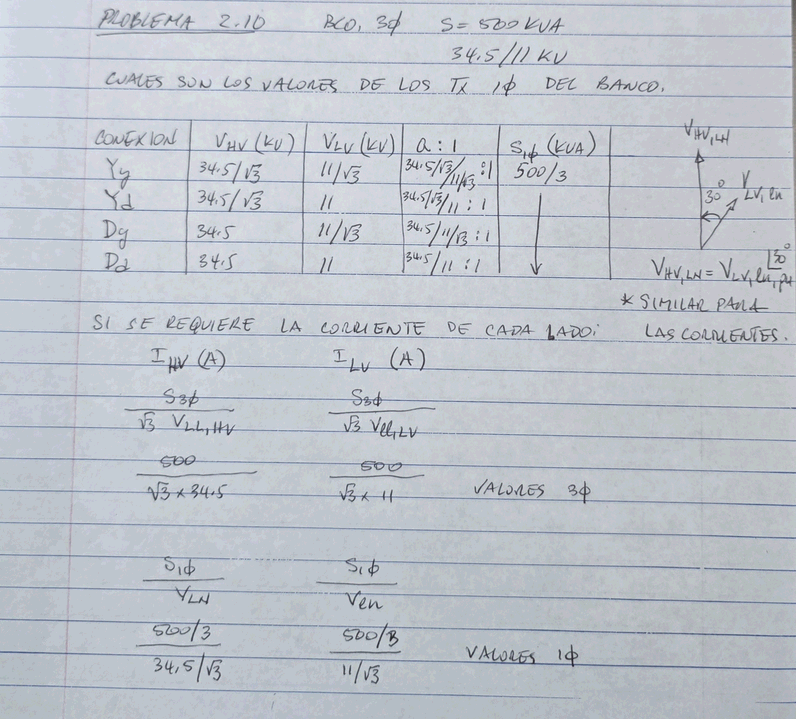 PROBLEMA 2.10 BCO, 3ϕ S = 500 KVA
34.5/11 KV
CUALES SON LOS VALORES DE LOS TX 1ϕ DEL BANCO.
CONEXION V_HV (KV) V_LV (KV) a : 1 S_1ϕ (KVA)
Yy 34.5/√3 11/√3 34.5/√3/11/√3 :1 500/3
Yd 34.5/√3 11 34.5/√3/11 : 1
Dy 34.5 11/√3 34.5/11/√3 : 1
Dd 34.5 11 34.5/11 : 1
V_HV,LN
30° V_LV,ln
V_HV,LN = V_LV,ln,pu ∠30°
* SIMILAR PARA
LAS CORRIENTES.
SI SE REQUIERE LA CORRIENTE DE CADA LADO:
I_HV (A) I_LV (A)
S3ϕ S3ϕ
√3 V_LL,HV √3 Vll,LV
500 500
√3 x 34.5 √3 x 11 VALORES 3ϕ
S1ϕ S1ϕ
V_LN Vln
500/3 500/3
34,5/√3 11/√3 VALORES 1ϕ